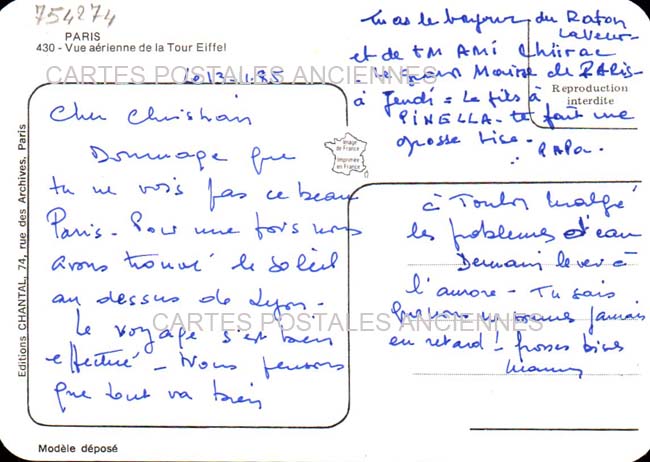 754274
PARIS
430 - Vue aérienne de la Tour Eiffel
CARTES POSTALES ANCIENNES
Le 13-1-85
Cher Christian
Dommage que
tu ne vois pas ce beau
Paris - Pour une fois nous
avons trouvé le soleil
au dessus de Lyon -
Le voyage s'est bien
effectué - Nous pensons
que tout va bien
Tu as le bonjour du Raton
Laveur
et de TM AMI Chirac
Le Maire de PARIS -
à Jeudi = Le fils à
PINELLA - te fait une
grosse bise -
PAPA -
Reproduction
interdite
Image
de France
Imprimée
en France
à Toulon malgré
les problèmes d'eau
Demain lever à
l'aurore - Tu sais
nous ne sommes jamais
en retard ! grosses bises
Maman
CARTES POSTALES ANCIENNES
Editions CHANTAL, 74, rue des Archives, Paris
Modèle déposé